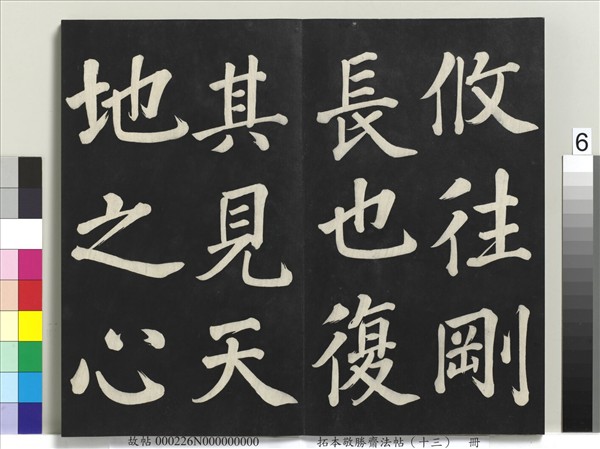 攸往剛
長也復
其見天
地之心
6
故帖 000226N000000000 拓本敬勝齋法帖(十三) 冊